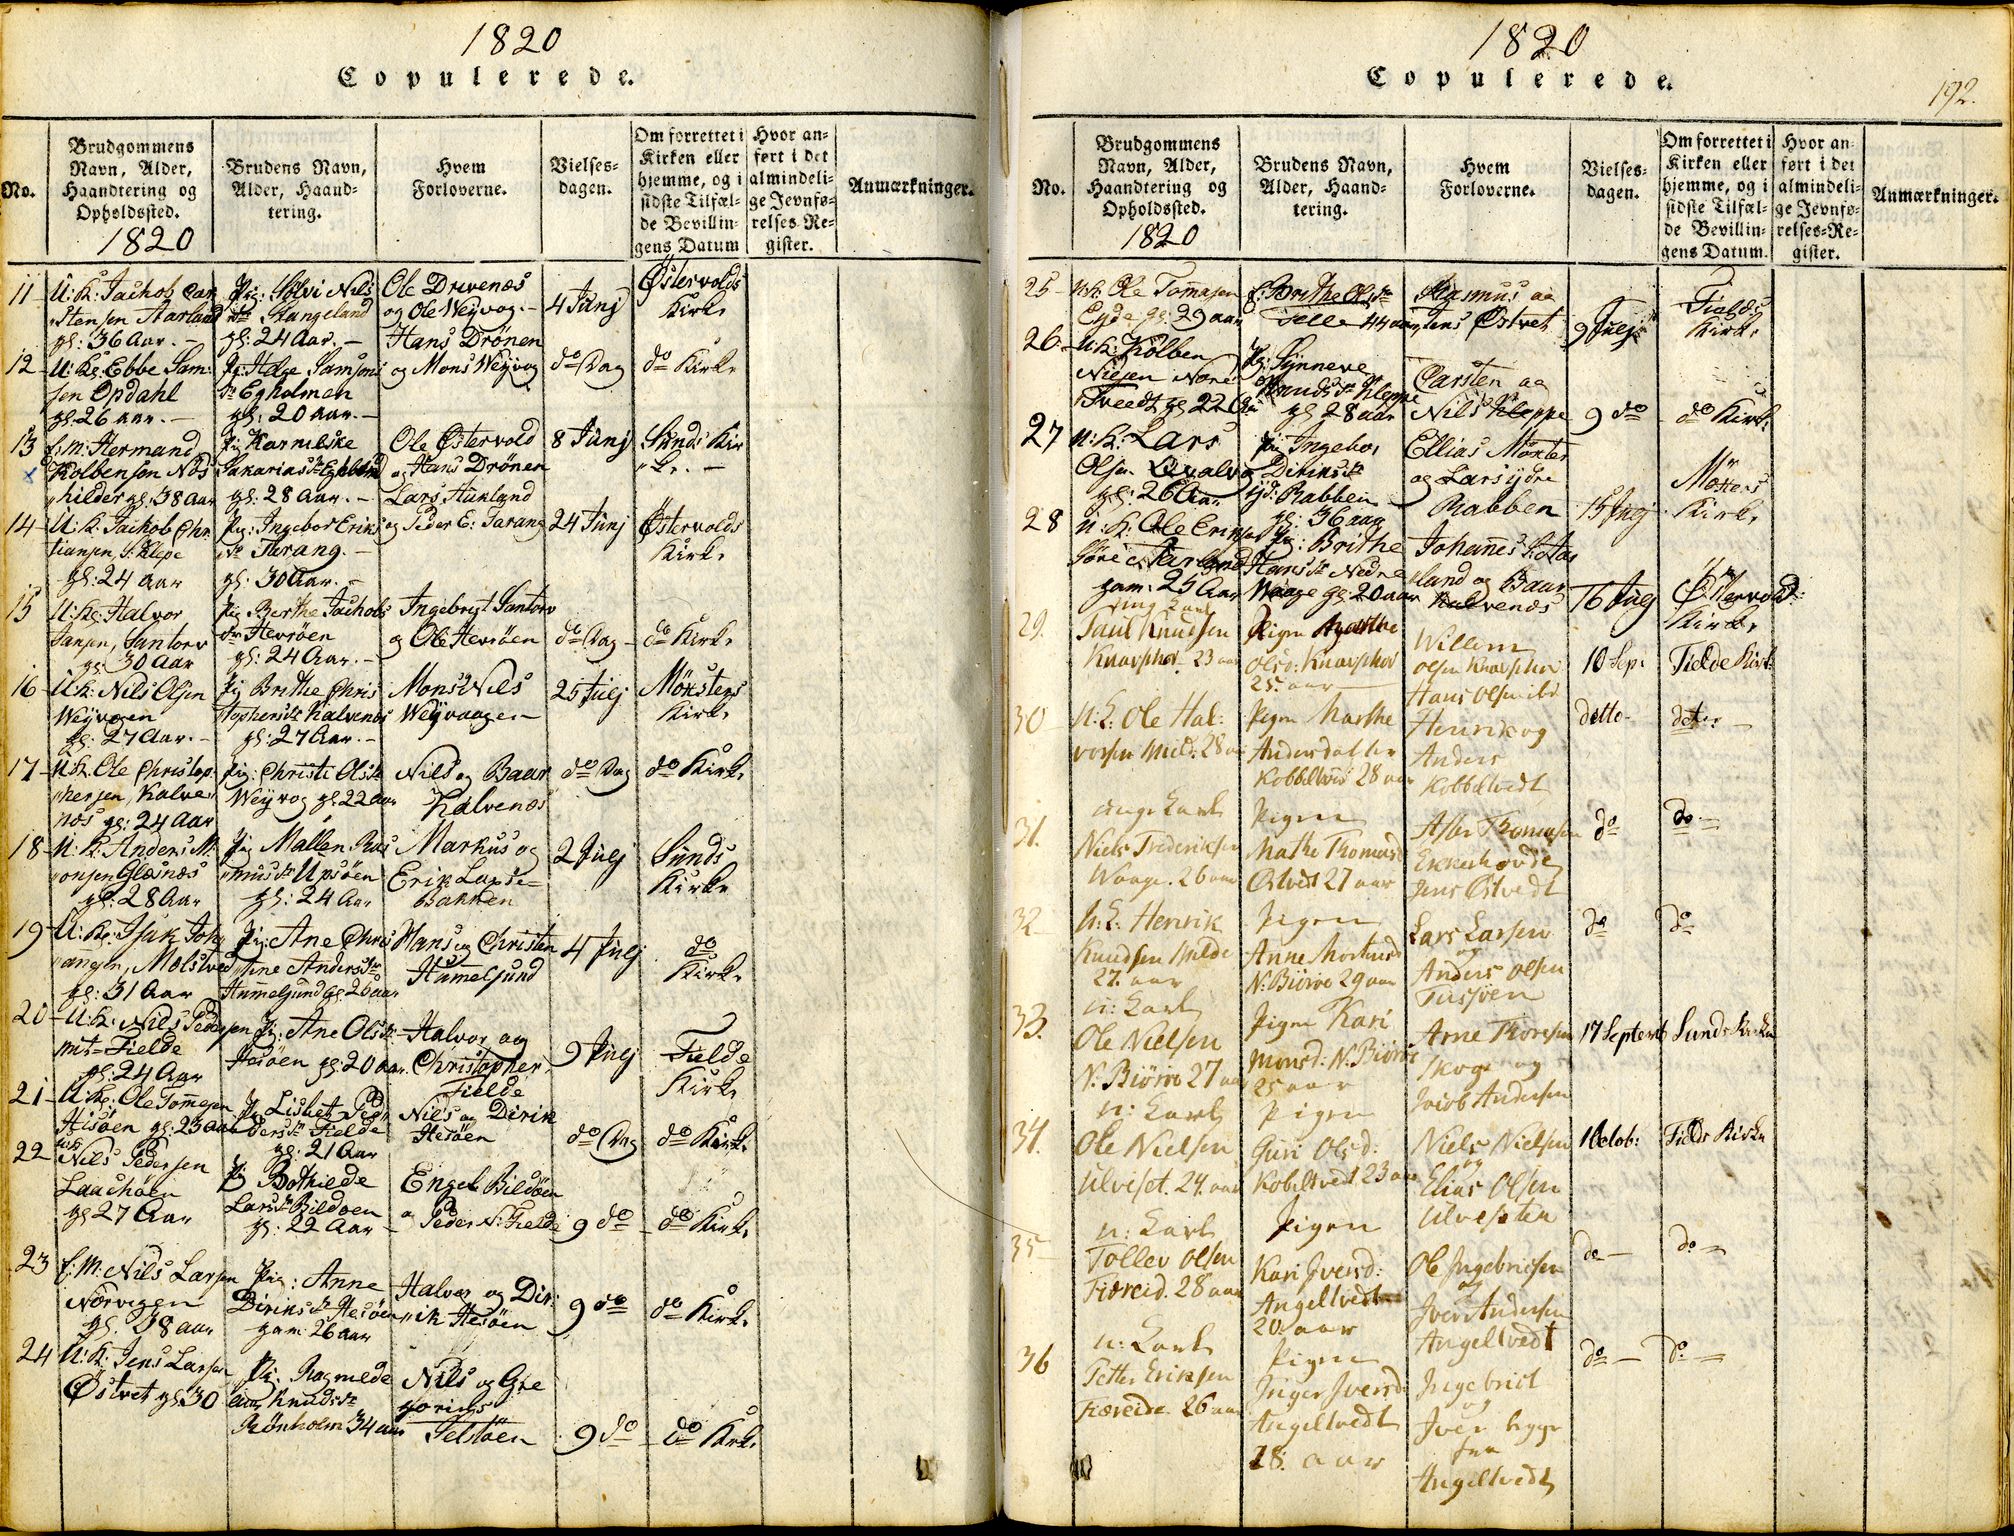 1820
Copulerede.
No.
Brudgommens
Navn, Alder,
Haandtering og
Opholdssted.
1820
Brudens Navn,
Alder, Haand=
tering.
Hvem
Forloverne.
Vielses=
dagen.
Om forrettet i
Kirken eller
hjemme, og i
sidste Tilfæl=
de Bevillin=
gens Datum
Hvor an=
ført i det
almindeli=
ge Jevnfø=
relses=Re=
gister.
Anmærkninger.
11
U: K: Jachob Car
stensen Aarland
gl: 36 Aar. —
Pig: Sølvi Nils
dr Stangeland
gl: 24 Aar. —
Ole Drevenæs
og Ole Weyvog. —
4 Junj
Østervolds
Kirke
12
U: K: Ebbe Sam:
sen Opdahl
gl: 26 aar. —
Pj: Helge Samsons
dr Egholmen
gl: 20 Aar. —
Hans Drönen
og Mons Weyvog
do Dag
do Kirke
13
E: M: Hermand
Kolbensen Nös
kilder gl: 38 Aar
Pj: Karnelske
Sakarias dr
gl: 28 Aar. —
Ole Østervold
og Hans Drönen
8 Junj
Sunds Kir
ke. —
14
U: K: Jachob Chr
tiansen, S: Klepe
gl: 24 aar
Pig: Ingebor Eriks
dr Tarang. —
gl: 30 Aar. —
Lars Aukland
og Peder E: Tarang
24 Junj
Østervolds
Kirke
15
U: K: Halvor
Jansen, Santorv
gl: 30 Aar
Pig Berthe Jachobs
dr Hevröen
gl: 24 Aar. —
Ingebrigt Santorv
og Ole Hevröen
do Dag
do Kirke
16
U: K: Nils Olsen
Weyvogen
gl: 27 Aar. —
Pig Brithe Chris
stophers dr Kalvenæs
gl: 27 Aar. —
Mons Nils
Weyvaagen
25 Julj
Möksters
Kirke
17
U K. Ole Christop:
hersen, Kalve
næs gl: 24 Aar
Pig: Christi Ols dr
Weyvog gl: 22 Aar
Nils og Baar
Kalvenæs
do Dag
do Kirke
18
U: K: Anders M:
onsen Glæsnæs
gl: 28 Aar
Pig Mallen Ras
mus dr Upsöen
gl: 24 Aar
Markus og
Erik Lapse=
Bakken
2 Julj
Sunds
Kirke
19
U: K: Isak Joh
ansen, Mælstved
gl: 31 Aar
Pig: Ane Chris
tine Anders dr
Hummelsund gl: 26 aar
Hans og Christen
Hummelsund
4 Julj
do
Kirke
20
U: K: Nils Pedersen
Mit= Fielde
gl: 24 Aar
Pj: Ane Ols dr
Hesöen gl: 20 aar
Halvor og
Christopher
Fielde
9 Julj
Fielde
Kirke
21
U: K: Ole Tomesen
Hisöen gl: 23 Aar
Pj Lisbet Pe
ders dr Fielde
gl: 21 Aar
Nils og Dirik
Hesöen
do Dag
do Kirke
22
U: K:
Nils Pedersen
Laachöen
gl 27 Aar
Pj Bothilde
Lars dr Bildöen
gl: 22 Aar
Engel Bildöen
og Peder N: Fielde
9 do
do Kirke
23
E: M: Nils Larsen
Norvigen
gl. 38 aar
Pig: Anne
Diriks dr Hesöen
gam 26 aar
Halvor og Dir:
ik Hesöen
9 do
do Kirke
24
U: K: Jens Larsen
Østvet gl: 30
aar
Pj. Ragnilde
Knuds dr
Rönholm 34 aar
Nils og Gre
gorius
Telstöen
9 do
do Kirke
1820
Copulerede.
192.
No.
Brudgommens
Navn, Alder,
Haandtering og
Opholdssted.
1820
Brudens Navn,
Alder, Haand=
tering.
Hvem
Forloverne.
Vielses=
dagen.
Om forrettet i
Kirken eller
hjemme, og i
sidste Tilfæl=
de Bevillin=
gens Datum.
Hvor an=
ført i det
almindeli=
ge Jevnfø=
relses=Re=
gister.
Anmærkninger.
25
U K. Ole Tomasen
Eyde gl: 29 aar
E: Brithe Ols dr
Telle 44 aar
Rasmus og
Jens Østvet
9 Julj
Fields
Kirke
26
U: K: Kolben
Nilsen Nore
Tveedt gl 22 Aar
Pj: Synneve
Knuds dr Kleppe
gl 28 aar
Carsten og
Nils Kleppe
9 do
do Kirke
27
U: K: Lars
Olsen
gl: 26 Aar
Pig Ingebor
Diriks dr
yd: Rabben
gl: 36 aar
Ellias Möxter
og Lars ydre
Rabben
15 Julj
Möxters
Kirke
28
U: K: Ole Eriksen
Söre Tarland
gam: 25 Aar
Pj: Brithe
Hans dr Nedre
Waage gl 20 aar
Johannes S: Aar
land og Baar
Kalvenæs
16 Julj
Østervold:
Kirke
29.
ung Karl
Paul Knudsen
Knarphov 23 aar
Pigen Marthe
Olsd: Knarphov
25. aar
Willem
Olsen Knarphov
Hans Olsen ibd
10 Sep:
Fielde Kirk
30
U: K: Ole Hal:
vorsen Milde 28 aar
Pigen Marthe
Andersdatter
Kobbeltved 28 aar
Henrik og
Anders
Kobbeltvedt
detto
dito
31.
unge Karl
Niels Frederiksen
Waage. 26 aar
Pigen
Mathe Thomasd
Østvedt 27 aar
Thomasen
Ekkerhovde
Jens Østvedt
do
do
32
U: K: Henrik
Knudsen Milde
27. aar
Pigen
Anne Mortensd
N: Biørøe 29 aar
Lars Larsen
og
Anders Olsen
Tussøen
do
do
33.
U: Karl
Ole Nielsen
N: Biørøe 27 aar
Pigen Kari
Monsd: N: Biørøe
25 aar
Arne Thoresen
Skoge og
Jacob Andersen
17 Septemb
Sunds Kirke
34.
U: Karl
Ole Nielsen
Ulveset. 24. aar
Pigen
Guri Olsd:
Kobeltvedt 23 aar
Niels Nielsen
og
Elias Olsen
Ulvesetter
1 Octob:
Fields Kirke
35
U: Karl
Tollev Olsen
Fiæreid. 28 aar
Pigen
Kari Iversd:
Angeltvedt
20 aar
Ole Ingebrigtsen
og
Iver Andersen
Angeltvedt
do
do
36
U: Karl
Petter Eriksen
Fiæreide 26 aar
Pigen
Inger Iversd
Angeltvedt
28. aar
Ingebrict
og
Iver begge
fra
Angeltvedt
do
do